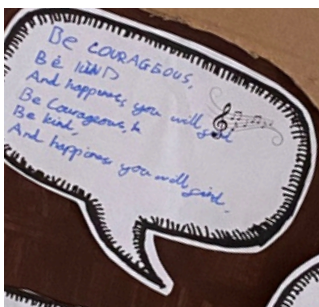 Be COURAGEOUS,
BE KIND
And happiness you will find
Be Courageous, &
Be kind,
And happiness you will find.